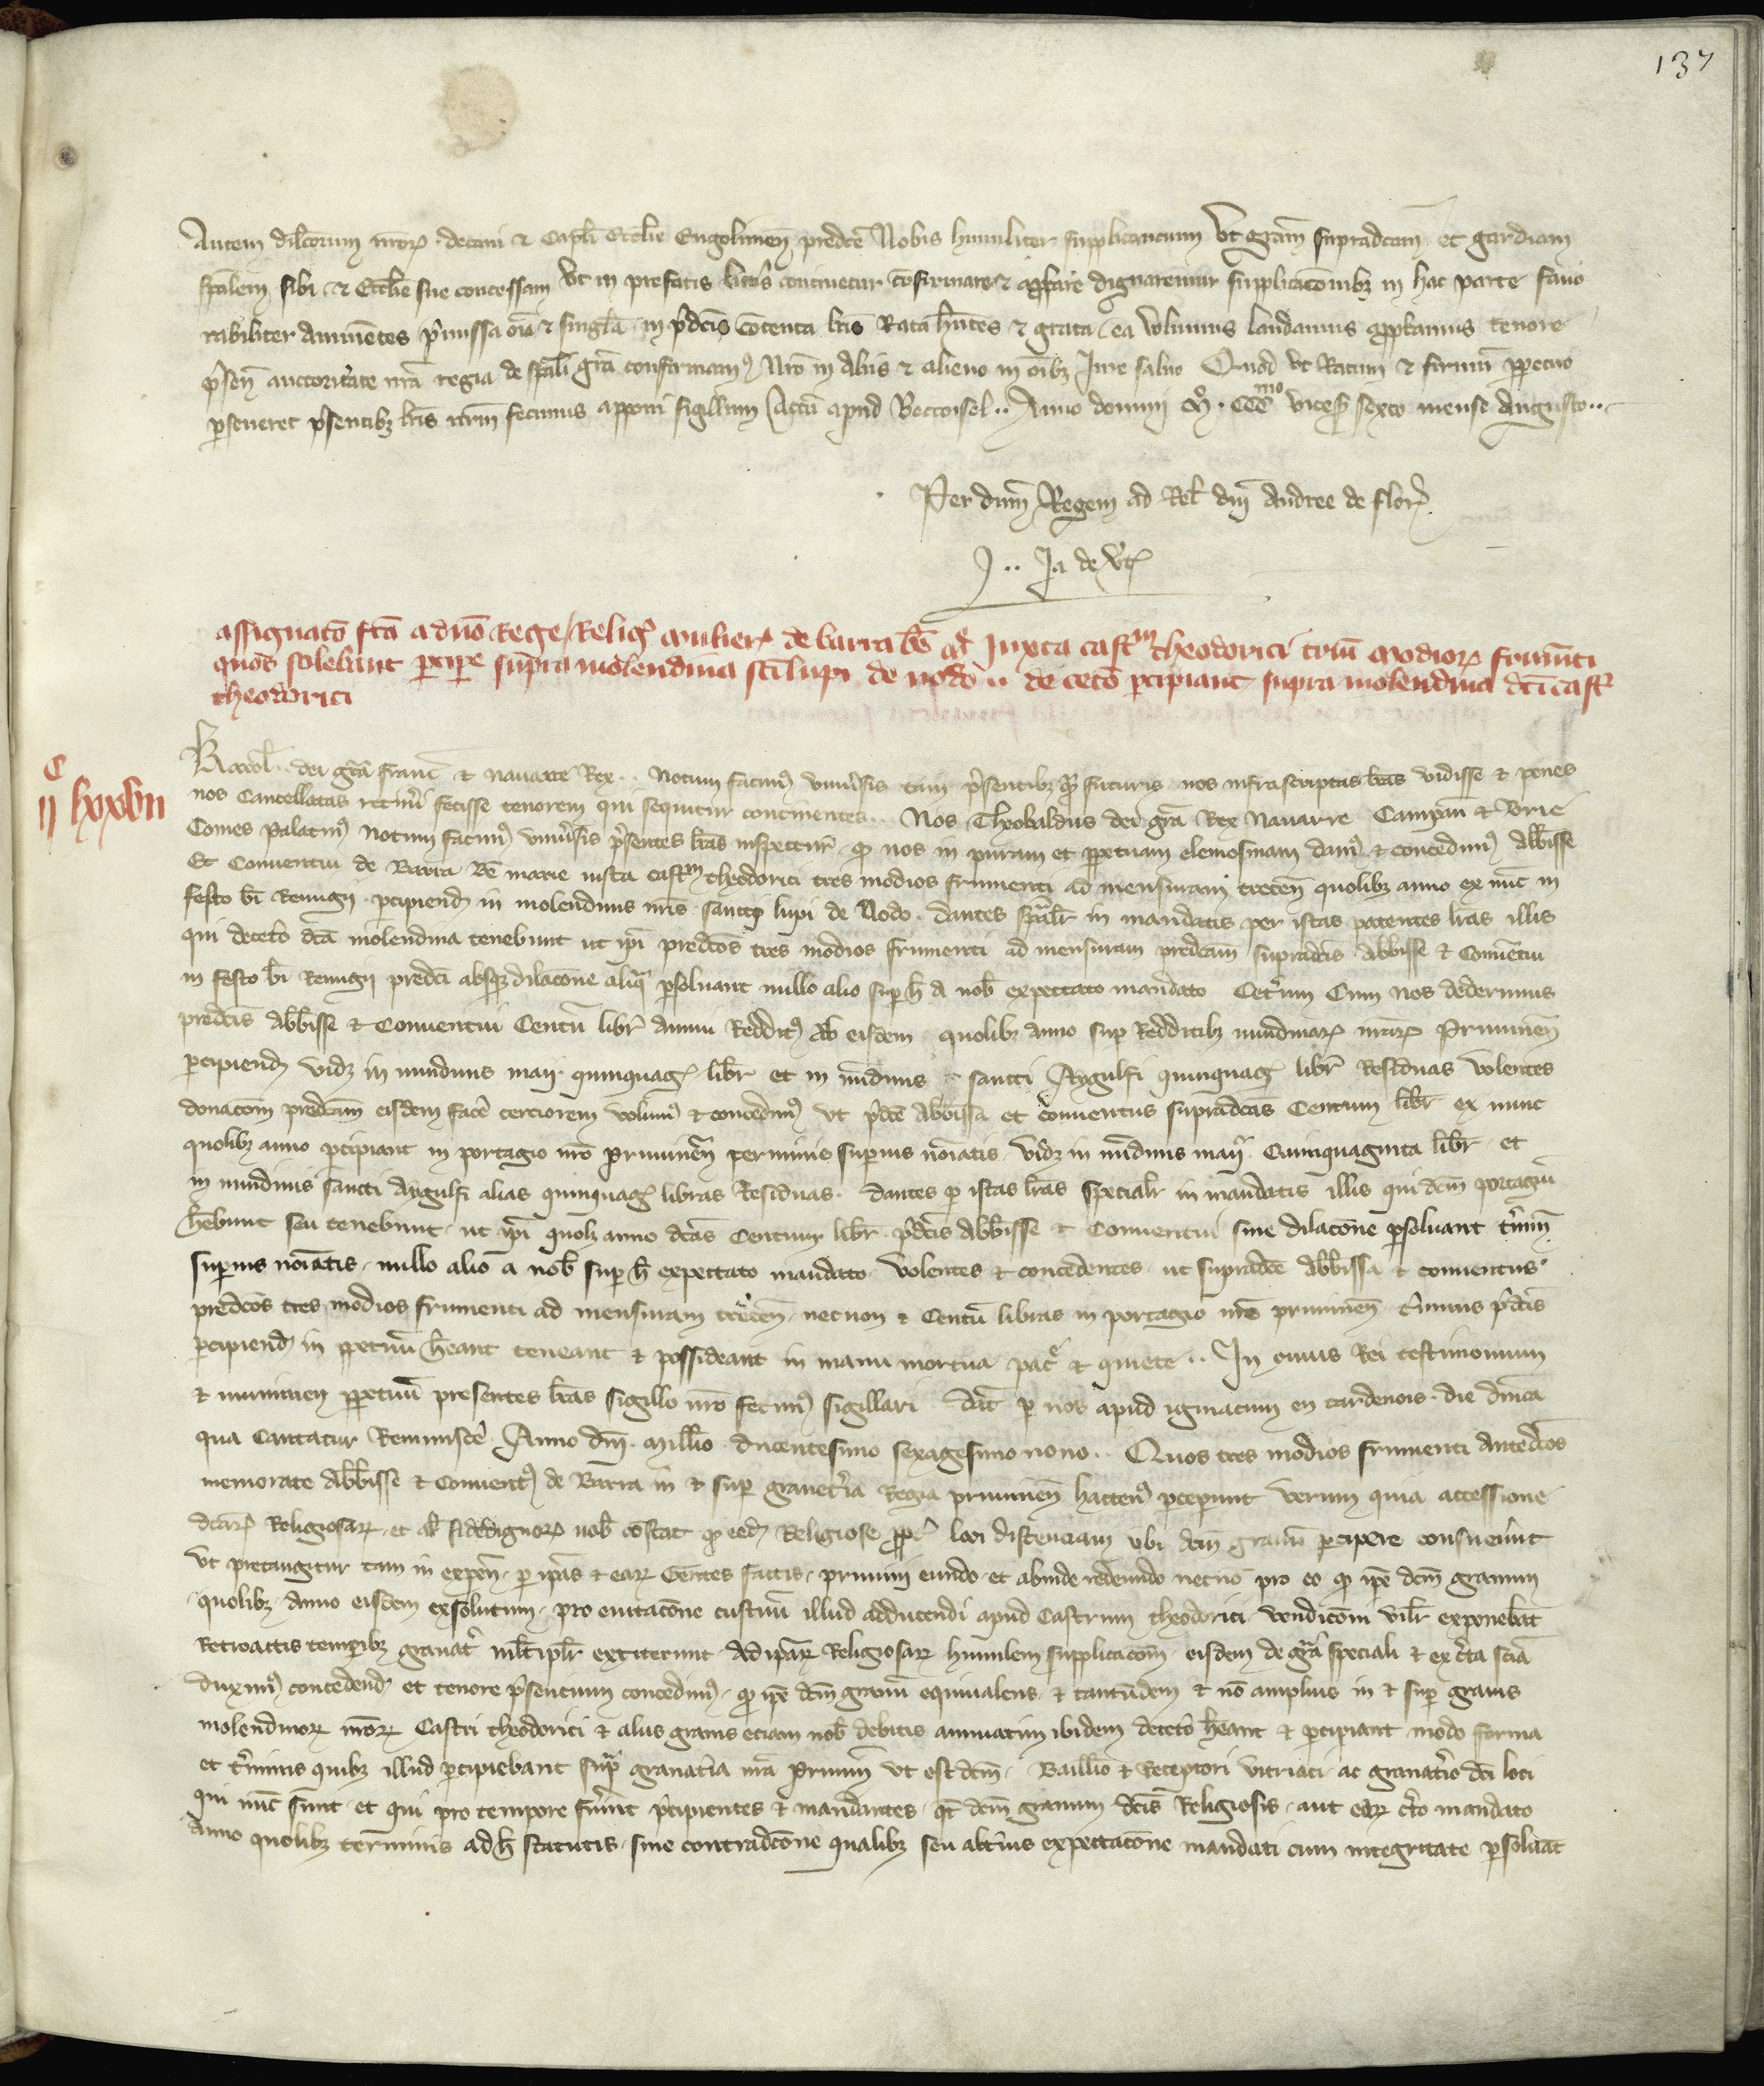 137
Autem dilcorum nror decani et Capli Ecclie Engolimen predce Nobis humiliter supplicancium Vt gram supradcam et gardiam
spalem sibi et Ecclie sue concessam Vt in prefatis litris continetur confirmare et appbare dignaremur supplicacionibz in hac parte favo
rabiliter annuentes pmissa oia et singla in pdcis contenta lris Rata hntes et grata ea volumus laudamus appbamus tenore
psen auctoritate nra regia de spali gra confirmam Nro in aliis et alieno in oibz Jure salvo Quod Vt Ratum et firmu ppetuo
perseveret psentibz lris nrm fecimus apponi sigillum Actu apud Becoisel .. Anno domini Mo CCCmo vicesio sexto mense Augusto ..
Per dnm Regem ad Rel dni Andree de flor
J .. Ja de Vt
assignaco fca a dno Rege Relig mulier de barra be M Juxta castrm theodorici trium modior frumenti
quos solebant pcipe supra molendina sci lupi de nodo .. de cetero pcipiant supra molendina dci cast
theodorici
C
ij lxxvii
Karol dei gra franc et navarre Rex .. Notum facim univsis tam psentibz qm futuris nos infrascriptas lras vidisse et penes
nos Cancellatas retineri fecisse tenorem qui sequitur continentes .. Nos Theobaldus dei gra Rex Navarre Campan et Brie
Comes Palatin Notum facim univsis psentes lras inspectur qd nos in puram et ppetuam elemosinam dam et concedim Abbisse
Et Conventui de Barra Be marie iuxta castrm theodorici tres modios frumenti ad mensuram trecen quolibz anno ex nunc in
festo bi Remigii pcipiend in molendinis nris sancti lupi de Nodo dantes spalr in mandatis per istas patentes lras illis
qui decetero dca molendina tenebunt ut ipi predcos tres modios frumenti ad mensuram predcam supradcis Abbisse et Conventui
in festo bi Remigii predci absqz dilacone aliqua psolvant nullo alio sup h a nob expectato mandato Ceterum Cum nos dederimus
predcis abbisse et Conventui Centu libr annui Reddit ab eisdem quolibz anno sup Redditibz nundinar nrar Pruvinen
percipiend vidz in nundinis maii quinquag libr et in nundinis sancti Aygulfi quinquag libr Residuas volentes
donacom predcam eisdem facere cerciorem volum et concedim vt pdce abbissa et conventus supradcas Centum libr ex nunc
quolibz anno pcipiant in portagio nro pruvinen terminis superius noiatis vidz in nundinis maii Quinquaginta libr et
in nundinis sancti Aygulfi alias quinquag libras Residuas dantes p istas lras specialr in mandatis illis qui dcm portagiu
hebunt seu tenebunt ut ipi quolz anno dcas Centum libr pdcis abbisse et Conventui sine dilacone psolvant tmin
superius noiatis nullo alio a nob sup h expectato mandato volentes et concedentes ut supradce abbissa et conventus
predcos tres modios frumenti ad mensuram trecen necnon et Centu libras in portagio nro pruvinen tminis pdcis
percipiend in ppetuu heant teneant et possideant in manu mortua pace et quiete .. In cuius Rei testimonium
et munimen ppetuu presentes lras sigillo nro fecim sigillari dat p nos apud igniacum en tardenois die dnica
qua Cantatur Reminiscere Anno dni millio ducentesimo sexagesimo nono .. Quos tres modios frumenti antedcos
memorate abbisse et Convent de Barra in et sup granetia Regia pruvinen hacten pceperunt verum quia accessione
dcar Religiosar et al fidedignor nob constat qd eed Religiose ppt loci distenciam ubi dcm granu percipere consuevnt
vt pretangitur tam in expen p ipas et ear Gentes factis pruvini eundo et abinde redeundo necno pro eo qd ipe dcm granum
quolibz anno eisdem exsolutum pro evitacone custuu illud adducendi apud Castrum theodorici vendiconi vilr exponebat
Retroactis tempibz gravat mltiplr extiterunt ad ipar Religiosar humilem supplicacom eisdem de gra speciali et ex cta scia
duxim concedend et tenore psencium concedim qd ipe dcm granu equivalens et tantudem et no amplius in et sup granis
molendinor nror Castri theodorici et aliis granis eciam nob debitis annuatim ibidem decetero heant et pcipiant modo forma
et tminis quibz illud pcipiebant supra granatia nra pruvini vt est dcm Baillivo et Receptori vitriaci ac granatio dci loci
qui nuc sunt et qui pro tempore fuint pcipientes et mandantes qt dcm granum dcis Religiosis aut ear cto mandato
anno quolibz terminis ad h statutis sine contradcone qualibz seu altius expectacone mandati cum integritate psolvat